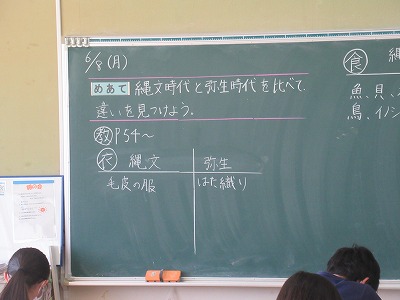 6/8(月)
めあて 縄文時代と弥生時代を比べて、
違いを見つけよう。
教 P54~
衣 縄文 弥生
毛皮の服 はた織り
食 縄
魚、貝、
鳥、イノシ